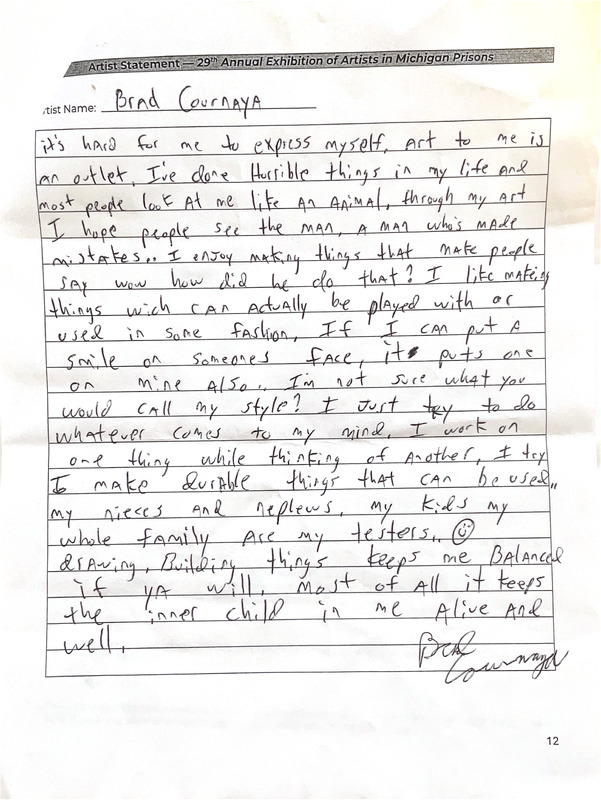 Artist Statement — 29th Annual Exhibition of Artists in Michigan Prisons
tist Name: Brad Cournaya
it's hard for me to express myself, art to me is
an outlet, I've done Horrible things in my life and
most people look at me like an animal, through my art
I hope people see the man, a man who's made
mistakes.. I enjoy making things that make people
say wow how did he do that? I like making
things wich can actually be played with or
used in some fashion, If I can put a
smile on someones face, it puts one
on mine also.. I'm not sure what you
would call my style? I just try to do
whatever comes to my mind, I work on
one thing while thinking of another, I try
I make durable things that can be used..
my nieces and nephews, my kids my
whole family are my testers.. ☺
drawing, Building things keeps me Balanced
if ya will, most of all it keeps
the inner child in me alive and
well,
Brad
Cournaya
12